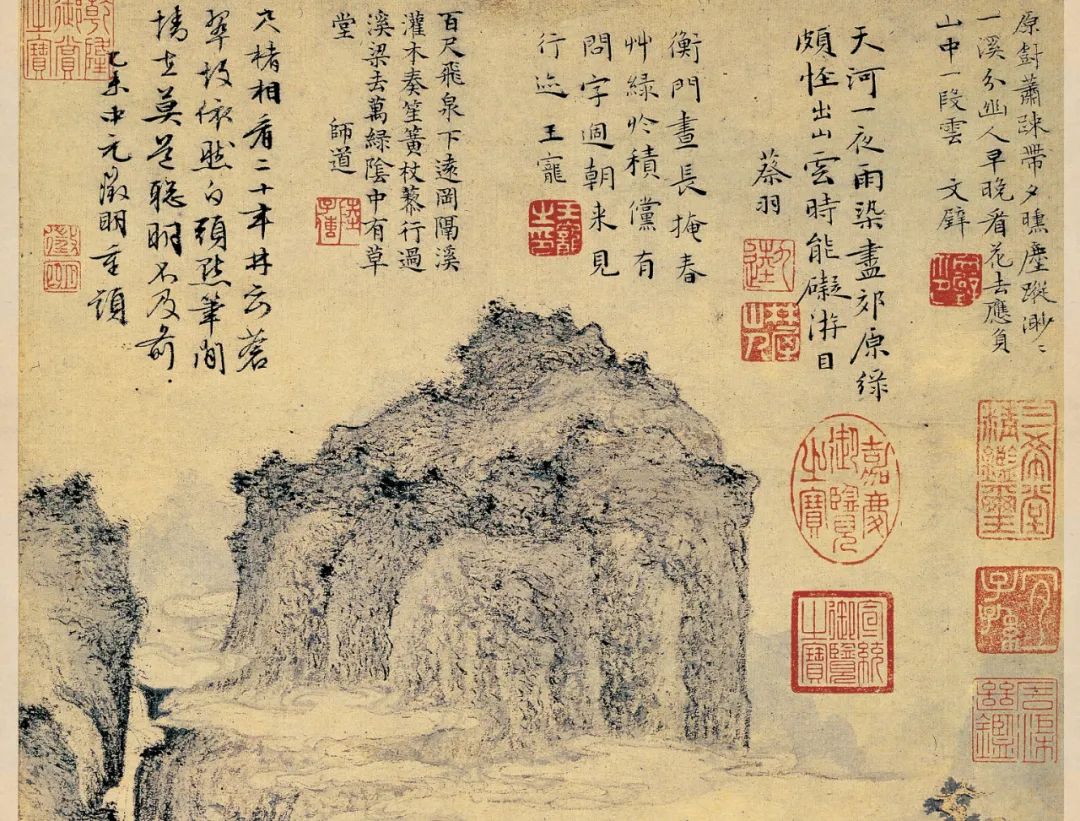 原樹蕭疎帶夕曛塵蹤渺〻
一溪分幽人早晚看花去應負
山中一段雲 文璧
天河一夜雨染盡郊原綠
頗怪出山雲時能礙游目
蔡羽
衡門晝長掩春
艸綠於積儻有
問字過朝来見
行迹 王寵
王寵之印
百尺飛泉下遠岡隔溪
灌木奏笙簧杖藜行過
溪梁去萬綠陰中有草
堂 師道
陸子傳
尺楮相看二十年林云蒼
翠故依然白頭點筆閒
情在莫道聰明不及前
乙未中元徵明重題
徵明
乾隆御賞之寶
三希堂精鑑璽
宜子孫
嘉慶御覽之寶
宣統御覽之寶